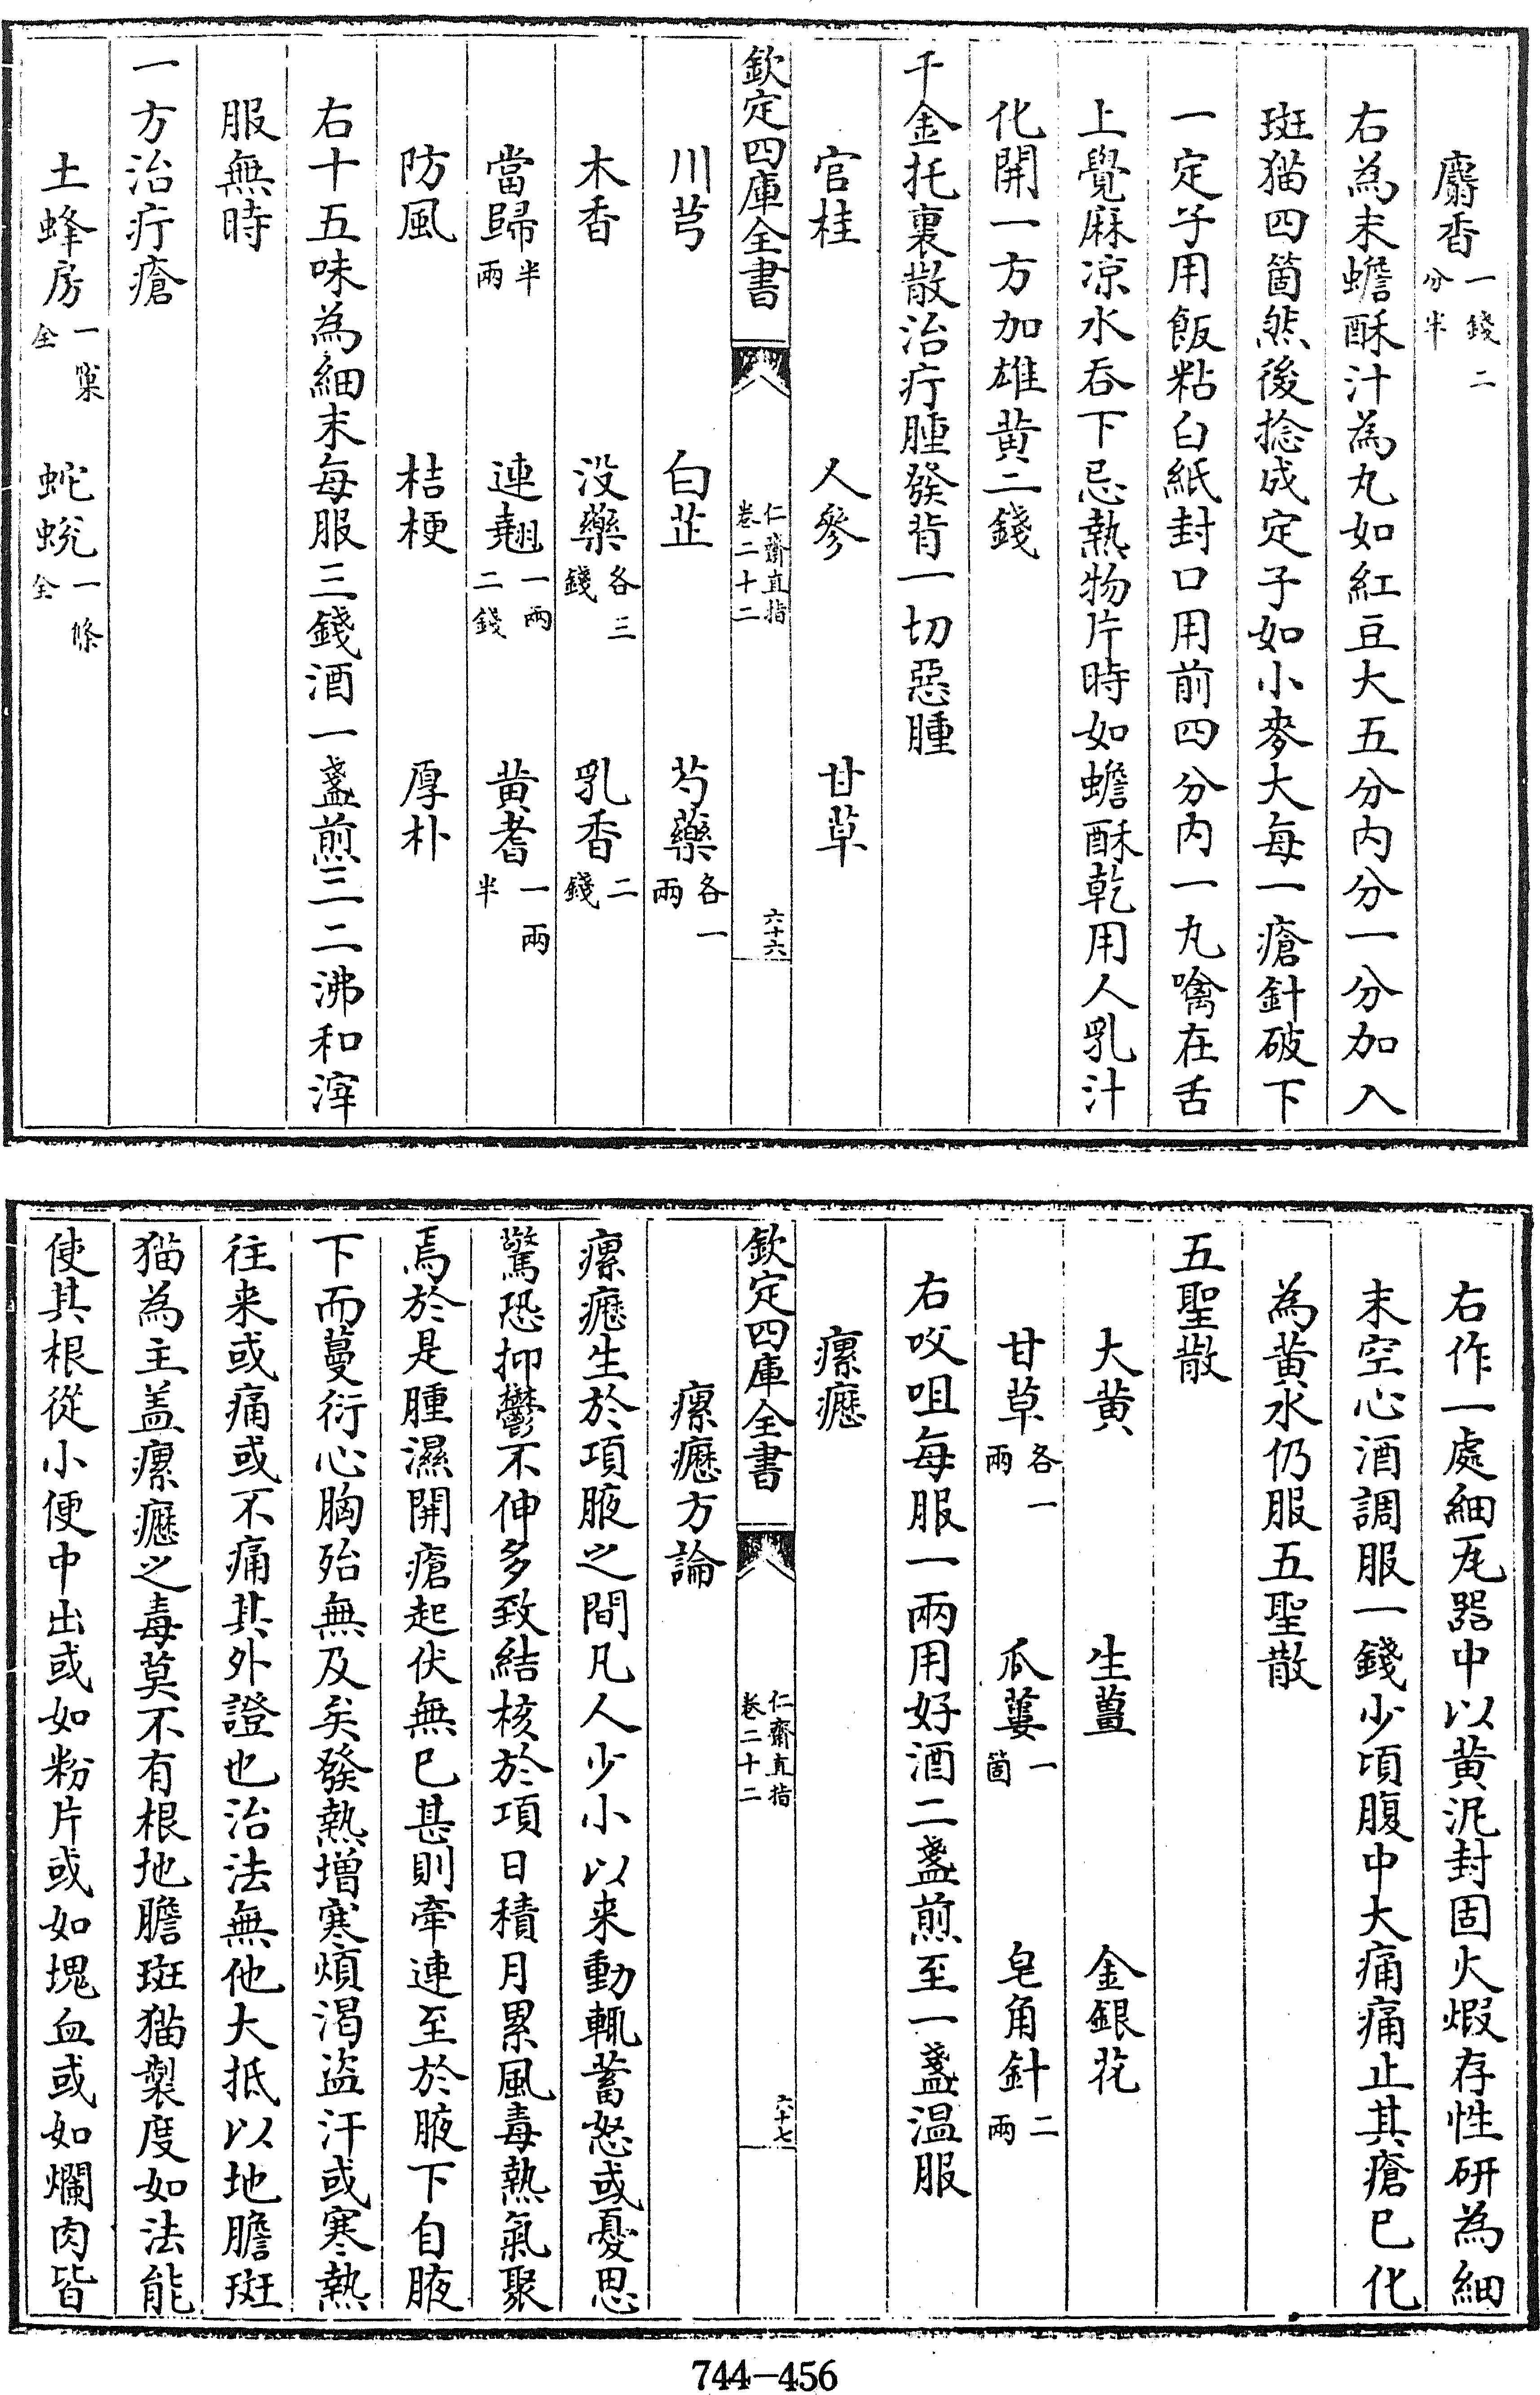 麝香一錢二分半
右為末蟾酥汁為丸如紅豆大五分内分一分加入
斑猫四箇然後捻成定子如小麥大每一瘡針破下
一定子用飯粘白紙封口用前四分内一丸噙在舌
上覺麻凉水吞下忌熱物片時如蟾酥乾用人乳汁
化開一方加雄黄二錢
千金托裏散治疔腫發背一切惡腫
官桂 人參 甘草
欽定四庫全書 仁齋直指 卷二十二 六十六
川芎 白芷 芍藥各一兩
木香 没藥各三錢 乳香二錢
當歸半兩 連翹一兩二錢 黄耆一兩半
防風 桔梗 厚朴
右十五味為細末每服三錢酒一盞煎三二沸和滓
服無時
一方治疔瘡
土蜂房一窠全 蛇蛻一條全
右作一處細瓦器中以黄泥封固火煆存性研為細
末空心酒調服一錢少頃腹中大痛痛止其瘡已化
為黄水仍服五聖散
五聖散
大黄 生薑 金銀花
甘草各一兩 瓜蔞一箇 皂角針二兩
右㕮咀每服一兩用好酒二盞煎至一盞温服
瘰癧
欽定四庫全書 仁齋直指 卷二十二 六十七
瘰癧方論
瘰癧生於項腋之間凡人少小以来動輒蓄怒或憂思
驚恐抑鬱不伸多致結核於項日積月累風毒熱氣聚
焉於是腫濕開瘡起伏無已甚則牽連至於腋下自腋
下而蔓衍心胸殆無及矣發熱增寒煩渴盜汗或寒熱
往来或痛或不痛其外證也治法無他大抵以地膽斑
猫為主盖瘰癧之毒莫不有根地膽斑猫製度如法能
使其根從小便中出或如粉片或如塊血或如爛肉皆
744-456